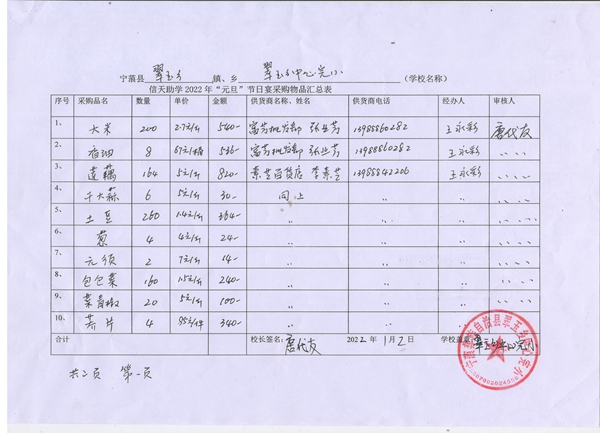 宁蒗县 翠玉乡 镇、乡 翠玉乡中心完小 （学校名称）
信天助学 2022 年“元旦”节日宴采购物品汇总表
序号 采购品名 数量 单价 金额 供货商名称、姓名 供货商电话 经办人 审核人
1、 大米 200 2.7元/斤 540- 富芬批发部 张生芬 13988860282 王永彩 唐代友
2、 香油 8 67元/桶 536- 富芬批发部 张生芬 13988860282 王永彩 〃
3、 莲藕 164 5元/斤 820- 素芝百货店 李素芝 13988842206 王永彩 〃
4、 干大蒜 6 5元/斤 30- 同上 〃 〃 〃
5、 土豆 260 1.4元/斤 364- 〃 〃 〃 〃
6、 葱 4 4元/斤 24- 〃 〃 〃 〃
7、 元须 2 7元/斤 14- 〃 〃 〃 〃
8、 包包菜 160 1.5元/斤 240- 〃 〃 〃 〃
9、 菜青椒 20 5元/斤 100- 〃 〃 〃 〃
10、 芥片 4 85元/件 340- 〃 〃 〃 〃
合计 校长签名： 唐代友 2022 年 1 月 2 日 学校盖章： 翠玉乡中心完小
共二页 第一页